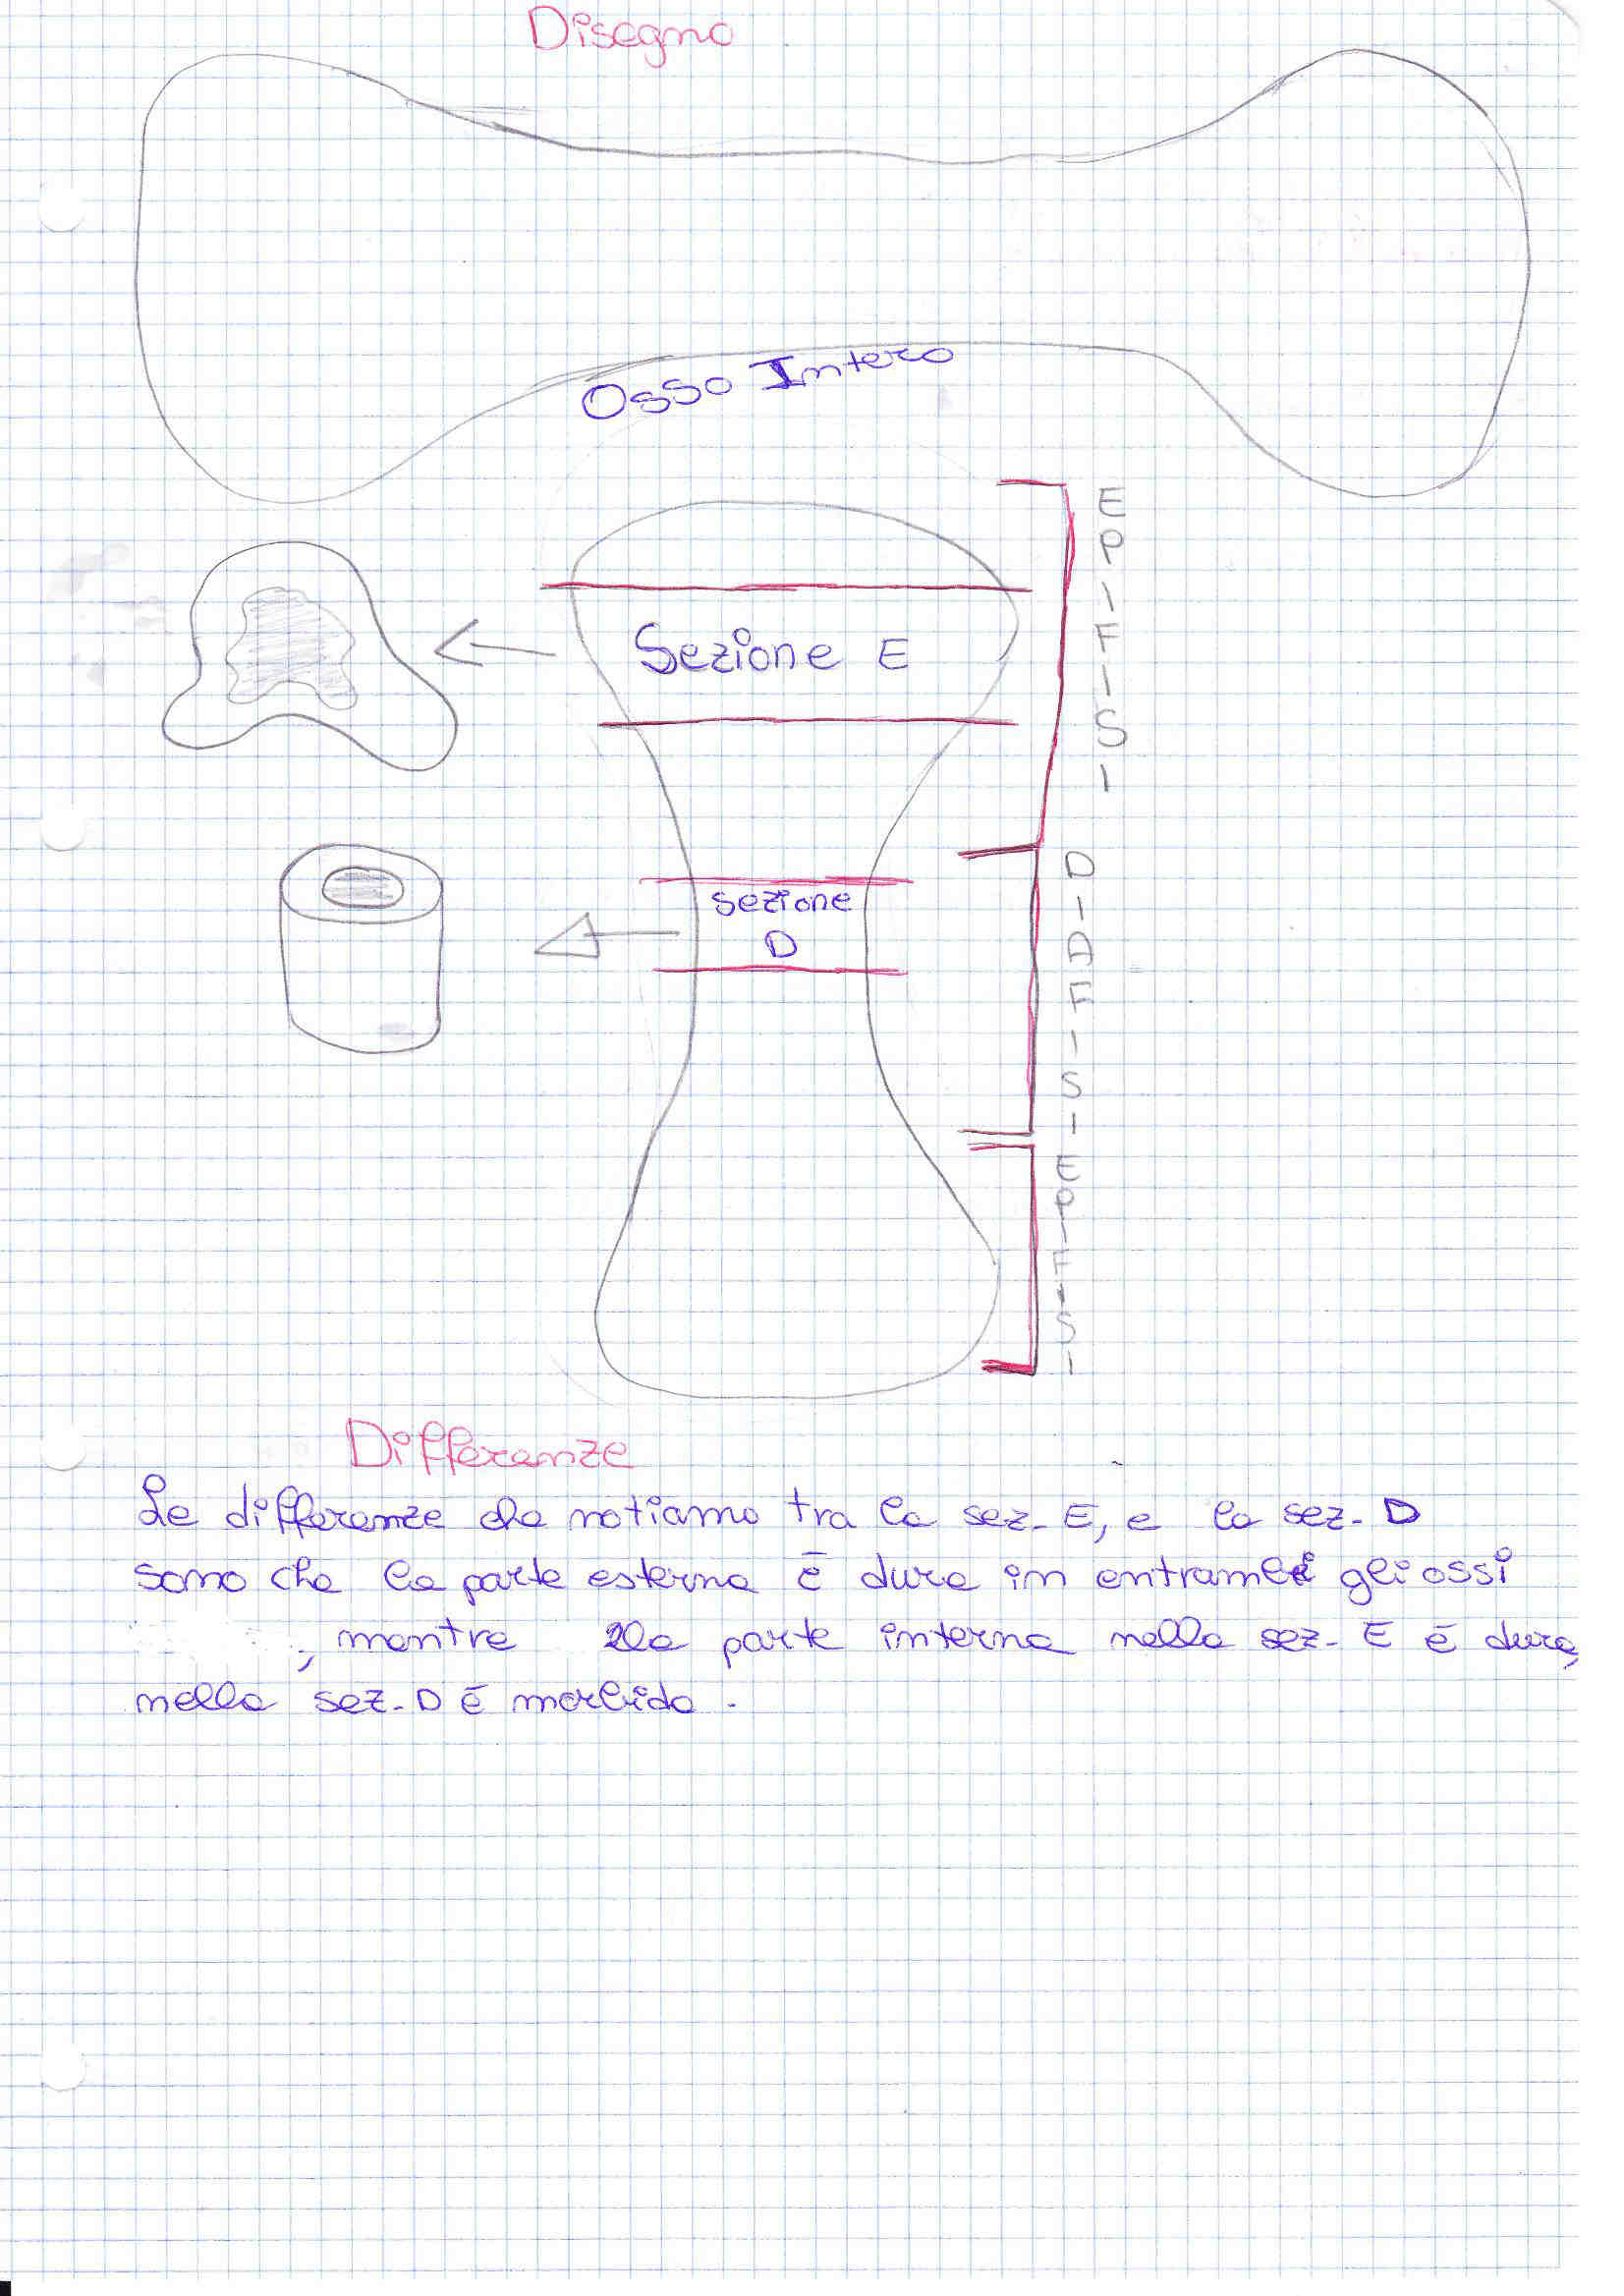 Disegno
Osso Intero
EPIFISI
Sezione E
DIAFISI
sezione
D
EPIFISI
Differenze
Le differenze che notiamo tra la sez. E, e la sez. D
sono che la parte esterna è dura in entrambi gli ossi
, mentre la parte interna nella sez. E è dura,
nella sez. D è morbida.